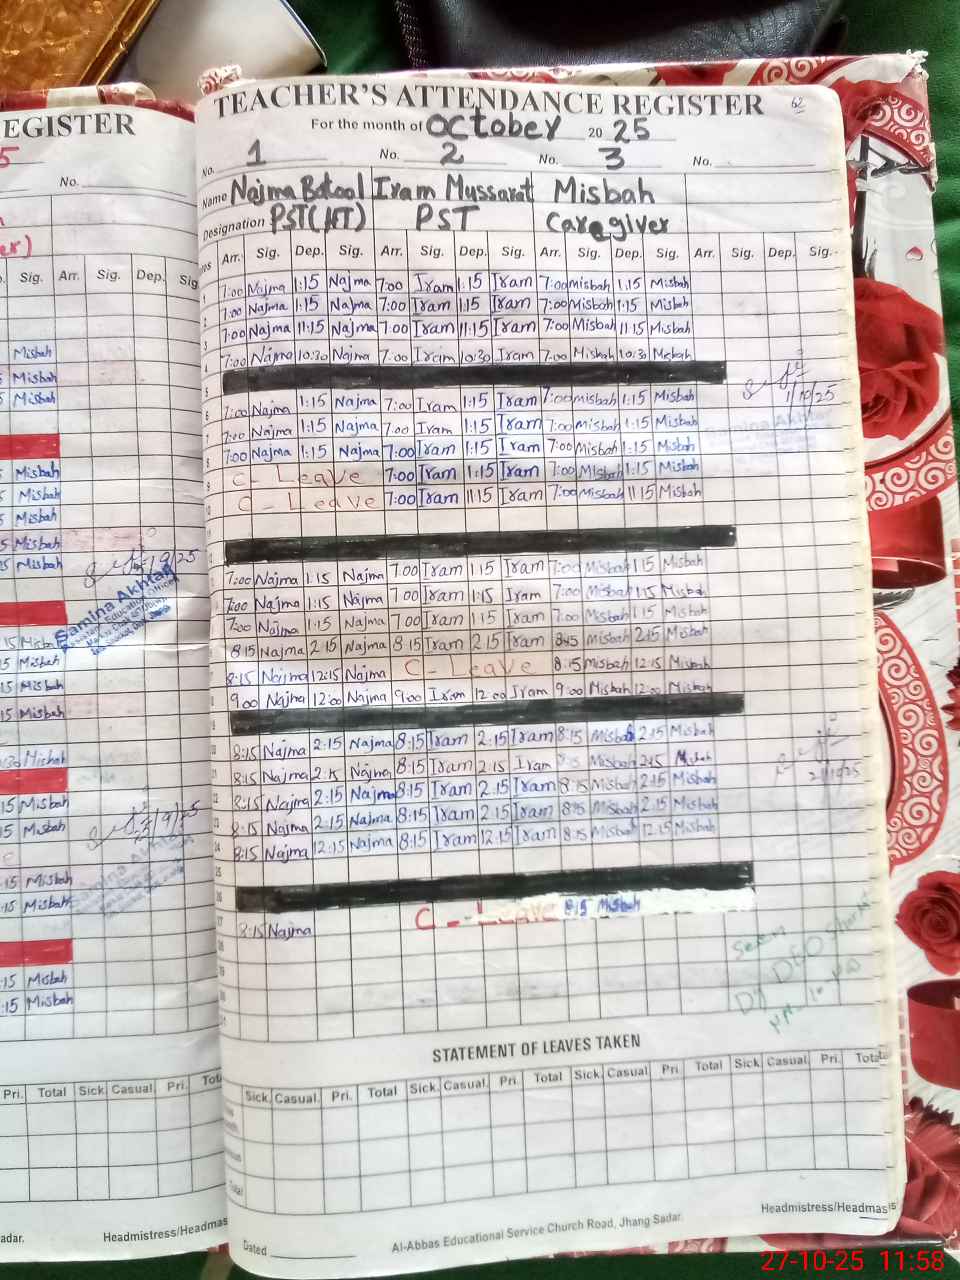 TEACHER'S ATTENDANCE REGISTER 62
For the month of October 2025
No. 1 No. 2 No. 3 No.
Name Najma Batool Iram Mussarat Misbah
Designation PST(HT) PST Caregiver
Arr. Sig. Dep. Sig. Arr. Sig. Dep. Sig. Arr. Sig. Dep. Sig. Arr. Sig. Dep. Sig.
1 7:00 Najma 1:15 Najma 7:00 Iram 1:15 Iram 7:00 Misbah 1:15 Misbah
2 7:00 Najma 1:15 Najma 7:00 Iram 1:15 Iram 7:00 Misbah 1:15 Misbah
3 7:00 Najma 11:15 Najma 7:00 Iram 11:15 Iram 7:00 Misbah 11:15 Misbah
4 7:00 Najma 10:30 Najma 7:00 Iram 10:30 Iram 7:00 Misbah 10:30 Misbah
5
1/10/25
6 7:00 Najma 1:15 Najma 7:00 Iram 1:15 Iram 7:00 misbah 1:15 Misbah
7 7:00 Najma 1:15 Najma 7:00 Iram 1:15 Iram 7:00 misbah 1:15 Misbah
8 7:00 Najma 1:15 Najma 7:00 Iram 1:15 Iram 7:00 Misbah 1:15 Misbah
9 C - Leave 7:00 Iram 1:15 Iram 7:00 Misbah 1:15 Misbah
10 C - Leave 7:00 Iram 11:15 Iram 7:00 Misbah 11:15 Misbah
7:00 Najma 1:15 Najma 7:00 Iram 1:15 Iram 7:00 Misbah 1:15 Misbah
7:00 Najma 1:15 Najma 7:00 Iram 1:15 Iram 7:00 Misbah 1:15 Misbah
7:00 Najma 1:15 Najma 7:00 Iram 1:15 Iram 7:00 Misbah 1:15 Misbah
8:15 Najma 2:15 Najma 8:15 Iram 2:15 Iram 8:15 Misbah 2:15 Misbah
8:15 Najma 12:15 Najma C - Leave 8:15 misbah 12:15 Misbah
9:00 Najma 12:00 Najma 9:00 Iram 12:00 Iram 9:00 Misbah 12:00 Misbah
8:15 Najma 2:15 Najma 8:15 Iram 2:15 Iram 8:15 Misbah 2:15 Misbah
8:15 Najma 2:15 Najma 8:15 Iram 2:15 Iram 8:15 Misbah 2:15 Misbah
8:15 Najma 2:15 Najma 8:15 Iram 2:15 Iram 8:15 Misbah 2:15 Misbah
8:15 Najma 2:15 Najma 8:15 Iram 2:15 Iram 8:15 Misbah 2:15 Misbah
8:15 Najma 12:15 Najma 8:15 Iram 12:15 Iram 8:15 Misbah 12:15 Misbah
8:15 Najma C - Leave 8:15 Misbah
Seen
Dy DEO
STATEMENT OF LEAVES TAKEN
Sick Casual. Pri. Total Sick. Casual. Pri. Total Sick. Casual. Pri. Total Sick. Casual. Pri. Total
Total
Headmistress/Headmas
Dated
Al-Abbas Educational Service Church Road, Jhang Sadar.
EGISTER
No.
Sig. Arr. Sig. Dep. Sig
Misbah
Misbah
Misbah
Misbah
Misbah
Misbah
Misbah
Misbah
Samina Akhtar
Misbah
Misbah
Misbah
Misbah
Misbah
Misbah
Misbah
Misbah
Misbah
Misbah
Misbah
Pri. Total Sick. Casual. Pri. Tot
adar. Headmistress/Headmas
27-10-25 11:58